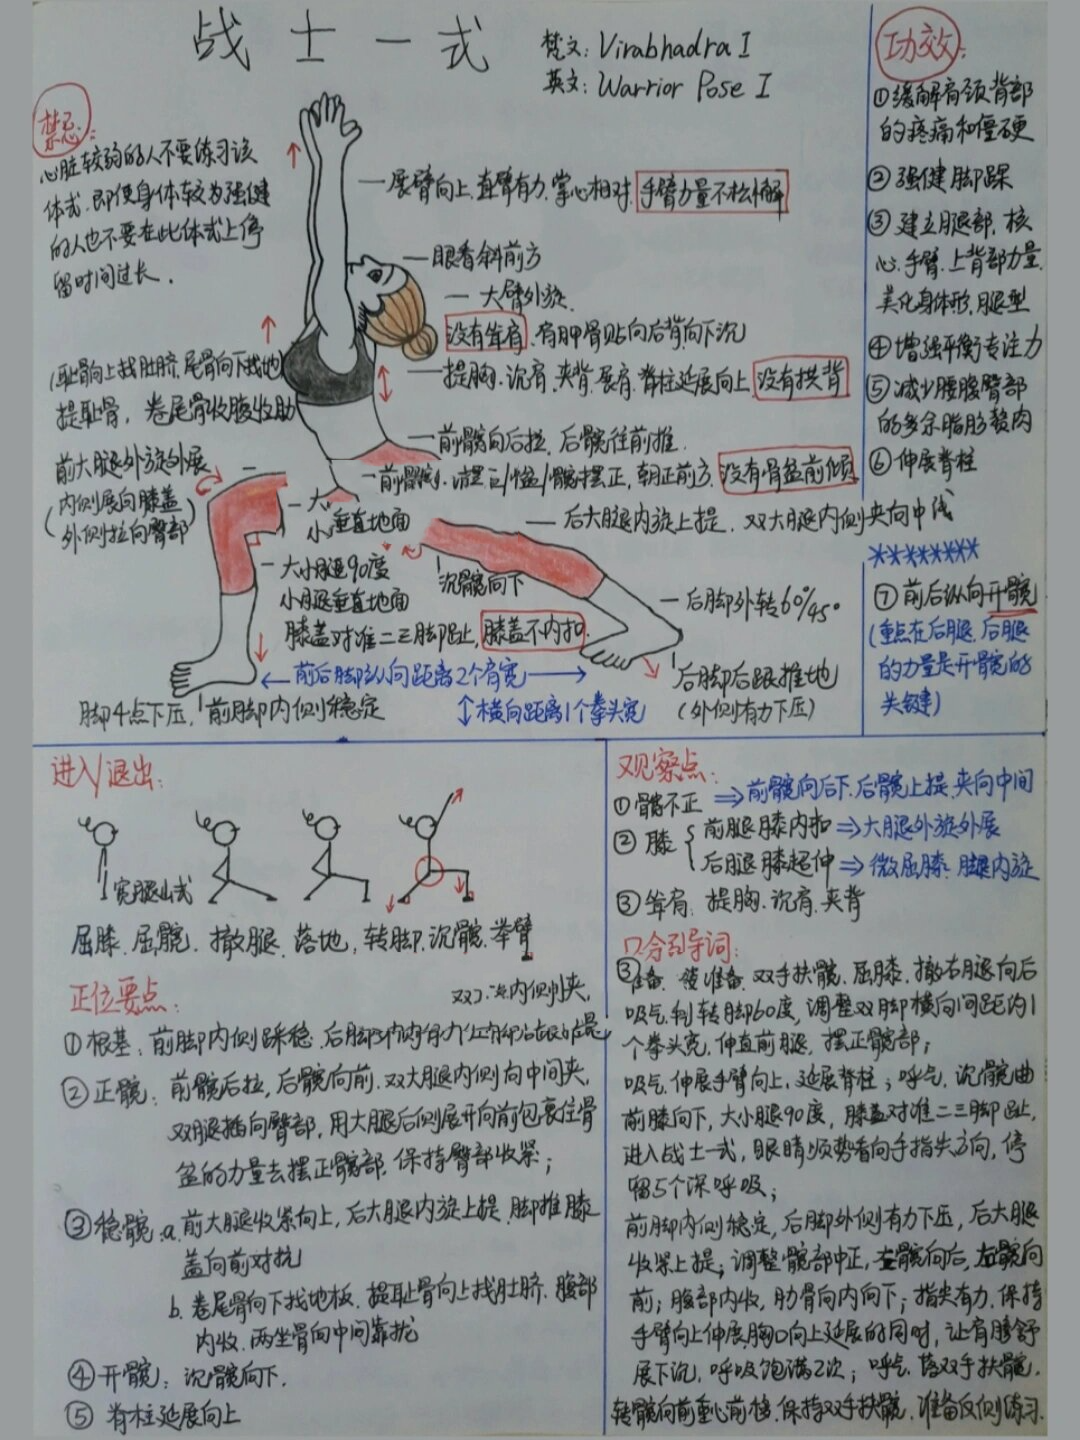 战士一式
梵文: Virabhadra I
英文: Warrior Pose I
禁忌:
心脏较弱的人不要练习该
体式.即使身体较为强健
的人也不要在此体式上停
留时间过长.
展臂向上.直臂有力.掌心相对.手臂力量不松懈
眼看斜前方
大臂外旋
没有耸肩.肩胛骨贴向后背向下沉
提胸.沉肩.夹背.展肩.脊柱延展向上.没有拱背
(耻骨向上找肚脐.尾骨向下找地
提耻骨,卷尾骨收腹收肋
前髋向后拉,后髋往前推.
前大腿外旋外展
(内侧展向膝盖
外侧拉向臀部)
髋摆正,朝正前方.没有骨盆前倾
后大腿内旋上提.双大腿内侧夹向中线
大
小 垂直地面
大小腿90度
小腿垂直地面
膝盖对准二三脚趾,膝盖不内扣.
沉髋向下
后脚外转60°/45°
后脚后跟推地
(外侧有力下压)
前后脚纵向距离2个肩宽
横向距离1个拳头宽
脚4点下压,前脚内侧稳定
功效:
①缓解肩颈背部
的疼痛和僵硬
②强健脚踝
③建立腿部.核
心.手臂.上背部力量.
美化身体形.腿型
④增强平衡专注力
⑤减少腰腹臀部
的多余脂肪赘肉
⑥伸展脊柱
********
⑦前后纵向开髋
(重点在后腿.后腿
的力量是开髋的
关键)
进入/退出:
宽腿山式
屈膝.屈髋.撤腿.落地,转脚.沉髋.举臂
正位要点:
内侧夹,
①根基:前脚内侧踩稳.
②正髋:前髋后拉,后髋向前.双大腿内侧向中间夹,
双腿插向臀部,用大腿后侧展开向前包裹住骨
盆的力量去摆正髋部.保持臀部收紧;
③稳髋:a.前大腿收紧向上,后大腿内旋上提.脚推膝
盖向前对抗
b.卷尾骨向下找地板.提耻骨向上找肚脐.腹部
内收.两坐骨向中间靠拢
④开髋:沉髋向下.
⑤脊柱延展向上
观察点:
①髋不正⇒前髋向后下.后髋上提.夹向中间
②膝{前腿膝内扣⇒大腿外旋外展
后腿膝超伸⇒微屈膝.腿内旋
③耸肩.提胸.沉肩.夹背
口令引导词:
准备.双手扶髋.屈膝.撤右腿向后
吸气.转脚60度,调整双脚横向间距约1
个拳头宽.伸直前腿.摆正髋部;
吸气.伸展手臂向上,延展脊柱;呼气.沉髋曲
前膝向下,大小腿90度,膝盖对准二三脚趾,
进入战士一式,眼睛顺势看向手指尖方向,停
留5个深呼吸;
前脚内侧稳定,后脚外侧有力下压,后大腿
收紧上提;调整髋部中正,左髋向后,右髋向
前;腹部内收,肋骨向内向下;指尖有力.保持
手臂向上伸展胸口向上延展的同时,让肩膀舒
展下沉.呼吸饱满2次;呼气.落双手扶髋.
转髋向前重心前移.保持双手扶髋.准备反侧练习.